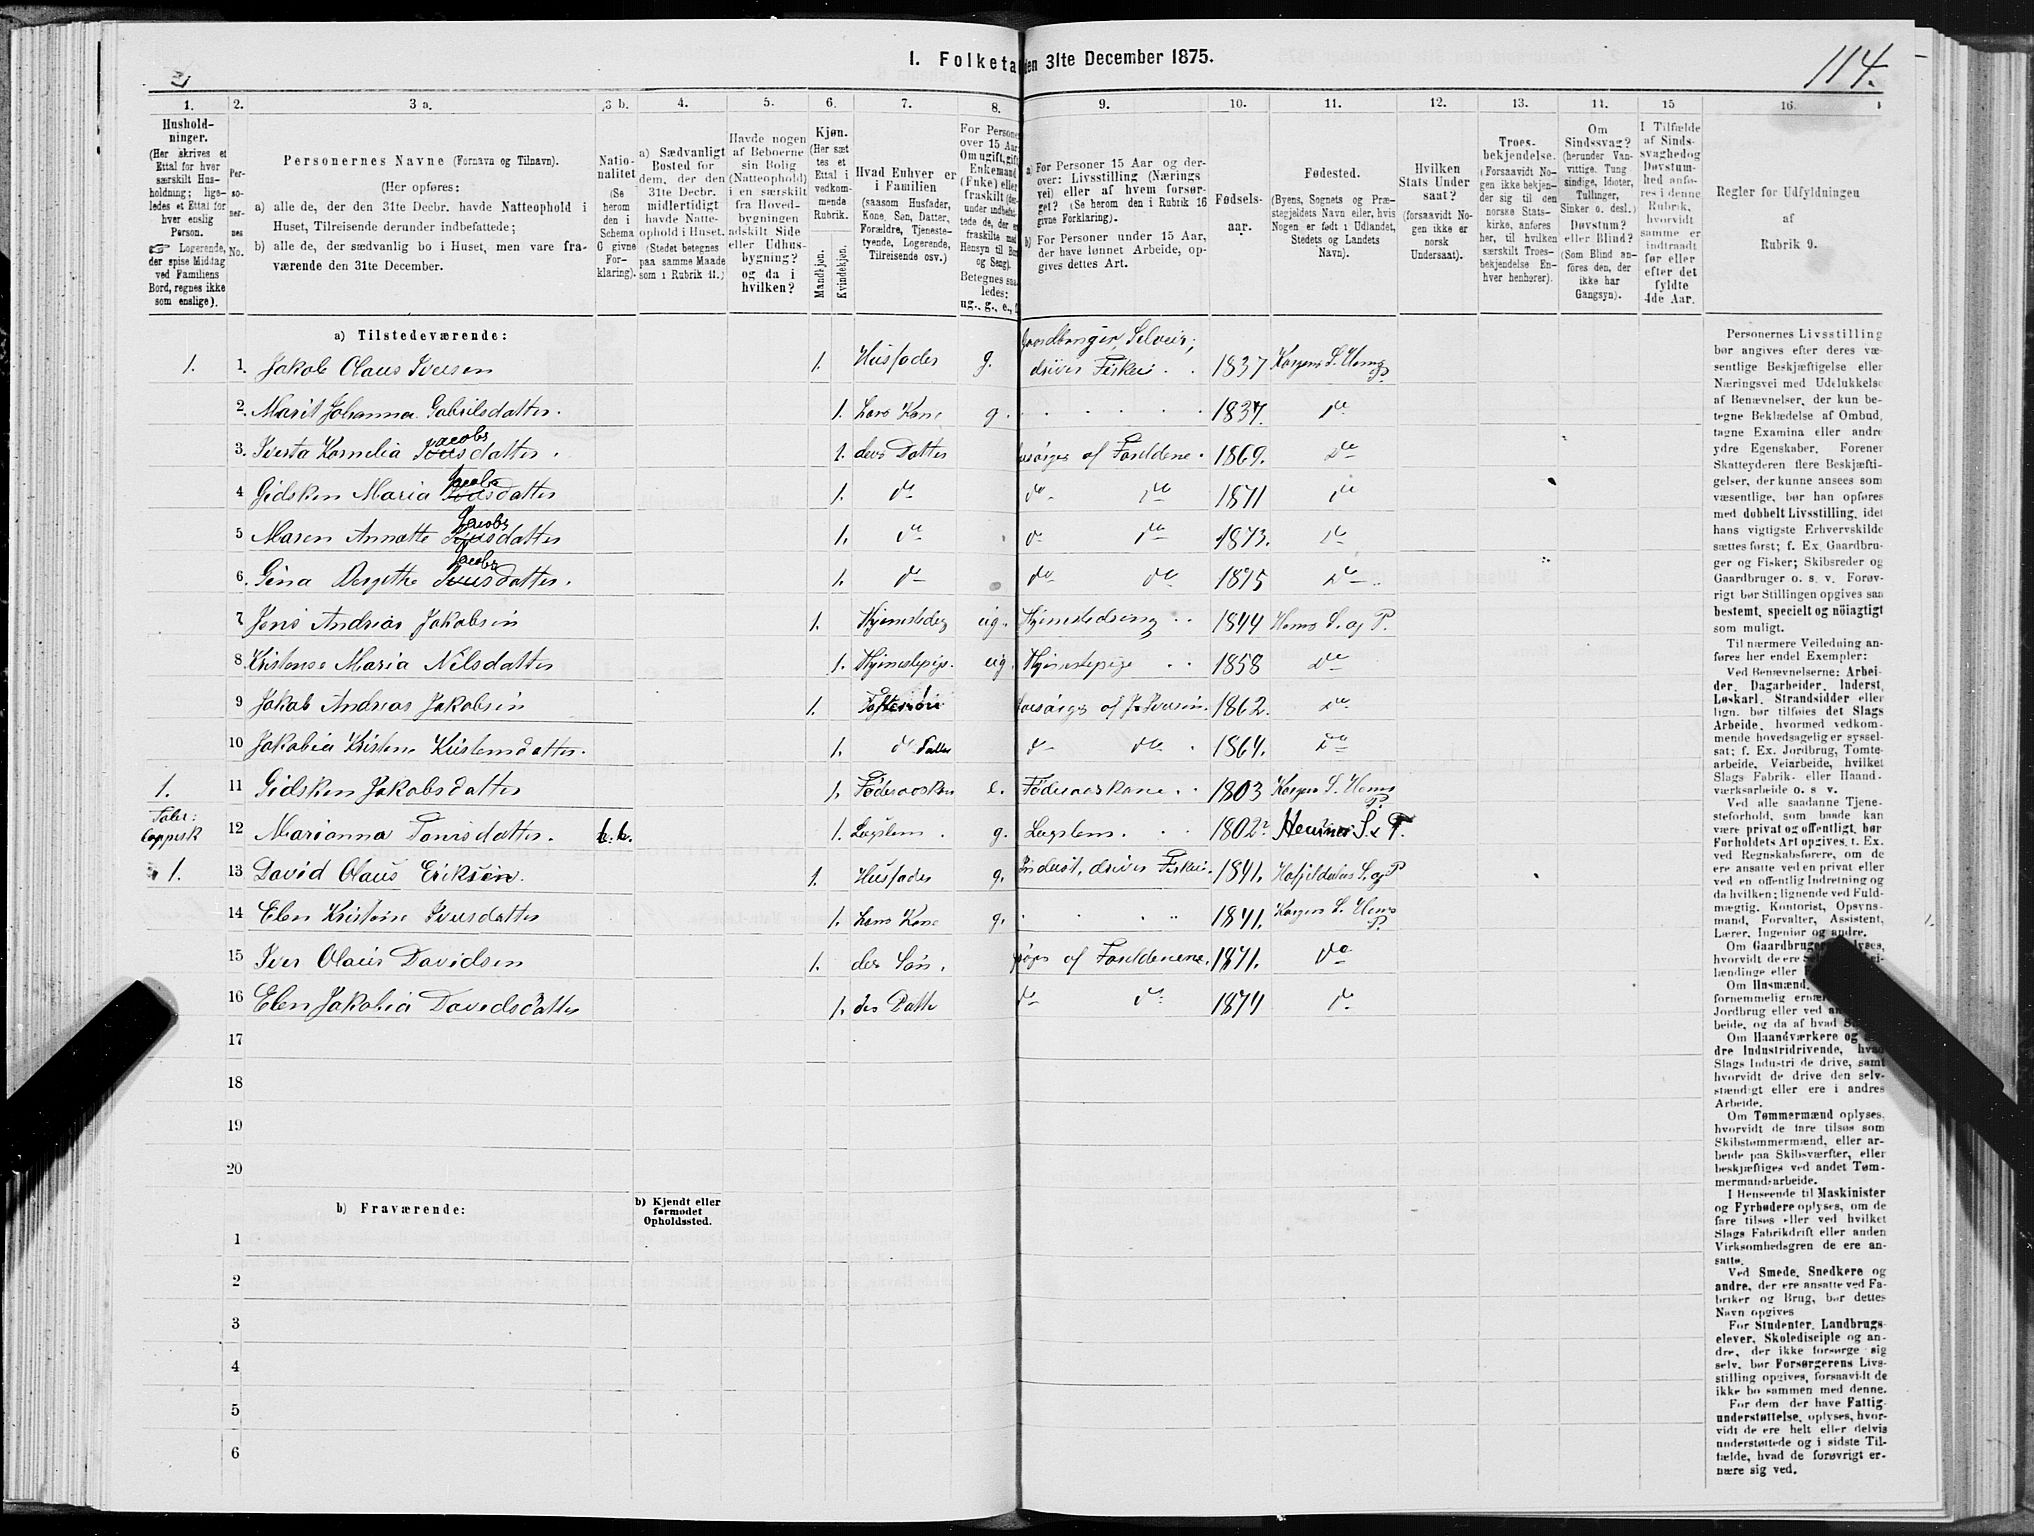 I. Folketæ
den 31te December 1875.
114.
1.
2.
3 a.
3 b.
4.
5.
6.
7.
8.
9.
10.
11.
12.
13.
14.
15
16.
Hushold-
ninger.
(Her skrives et
Ettal for hver
særskilt Hus-
holdning; lige-
ledes et Ettal for
hver enslig
Person.
☞ Logerende,
der spise Middag
ved Familiens
Bord, regnes ikke
som enslige).
Per-
so-
ner-
nes
No.
Personernes Navne (Fornavn og Tilnavn).
(Her opføres:
a) alle de, der den 31te Decbr. havde Natteophold i
Huset, Tilreisende derunder indbefattede;
b) alle de, der sædvanlig bo i Huset, men vare fra-
værende den 31te December.
Natio-
nalitet
(Se
herom
den i
Schema
G givne
For-
klaring).
a) Sædvanligt
Bosted for
dem, der den
31te Decbr.
midlertidigt
havde Natte-
ophold i Huset.
(Stedet betegnes
paa samme Maade
som i Rubrik 11.)
Havde nogen
af Beboerne
sin Bolig
(Natteophold)
i en særskilt
fra Hoved-
bygningen
adskilt Side
eller Udhus-
bygning?
og da i
hvilken?
Kjøn.
(Her sæt
tes et
Ettal i
vedkom-
mende
Rubrik.
Mandkjøn.
Kvindekjøn.
Hvad Enhver er
i Familien
(saasom Husfader,
Kone, Søn, Datter,
Forældre, Tjeneste-
tyende, Logerende,
Tilreisende osv.)
For Persone
over 15 Aar
Om ugift, gift
Enkemand
(Enke) eller
fraskilt (der-
under indbefat-
tede de, der er
fraskilte med
Hensyn til Bor
og Seng).
Betegnes saa
ledes:
ug., g., e., f.
a) For Personer 15 Aar og der-
over: Livsstilling (Nærings
vei) eller af hvem forsør-
get? (Se herom den i Rubrik 16
givne Forklaring).
b) For Personer under 15 Aar,
der have lønnet Arbeide, op-
gives dettes Art.
Fødsels-
aar.
Fødested.
(Byens, Sognets og Præ-
stegjeldets Navn eller, hvis
Nogen er født i Udlandet,
Stedets og Landets
Navn).
Hvilken
Stats Under
saat?
(forsaavidt No-
gen ikke er
norsk
Undersaat).
Troes-
bekjendelse.
(Forsaavidt No-
gen ikke bekjen-
der sig til den
norske Stats-
kirke, anføres
her, til hvilken
særskilt Troes-
bekjendelse En-
hver henhører).
Om
Sindssvag?
(herunder Van-
vittige. Tung
sindige, Idioter,
Tullinger,
Sinker o. desl.)
Døvstum?
eller Blind?
(Som Blind an-
føres den, der
ikke har
Gangsyn).
I Tilfælde
af Sinds-
svaghed og
Døvstum-
hed anfø-
res i denne
Rubrik,
hvorvidt
samme er
indtraadt
før eller
efter det
fyldte
4de Aar.
Regler for Udfyldningen
af
Rubrik 9.
a) Tilstedeværende:
Gaardbruger, Selveier,
1. 1. Jakob Olaus Iversen 1. Husfader g. driver Fiskeri 1837 Korgens S. Hemnes P.
2. Marit Johanna Gabrielsdatter. 1. hans Kone g. 1837. do
Jacobs
3. Iverta Kornelia Iversdatter. 1. deres Datter forsørges af Forældrene. 1869. do
Jacobs
4 Gidsken Maria Iversdatter 1. do do do 1871 do
Jacobs
5 Maren Annette Iversdatter 1. do do do 1873. do
Jacobs
6. Gina Bergithe Iversdatter. 1. do do do 1875 do
7 Jens Andreas Jakobsen 1. Tjenestedreng ug. Tjenestedreng 1844 Hemnes S. og P.
8. Kristense Maria Nilsdatter 1. Tjenestepige ug. Tjenestepige 1858 do
9 Jakob Andreas Jakobsen 1. Fostersøn forsørges af J. Iversen 1862. do
10 Jakobia Kristense Kristensdatter. 1. do Datter do do 1864. do
1. 11 Gidsken Jakobsdatter 1. Føderaadskone e. Føderaadskone 1803 Korgens S. Hemnes P.
Taler:
lappisk 12 Marianna Tomsdatter. b.b. 1. Lægslem g. Lægslem. 1802? Hemnes S. & P.
1. 13 David Olaus Eriksen. 1. Husfader g. Inderst, driver Fiskeri. 1841. Hatfjeldalens S. og P
14 Elen Kristine Iversdatter 1. hans Kone g. 1841. Korgens S. Hemnes P.
15 Iver Olaus Davidsen 1. deres Søn. forsørges af Forældrene. 1871. do
16 Elen Jakobia Davidsdatter 1. deres Datter do do 1874 do
17
18
19
20
b) Fraværende:
b) Kjendt eller
formodet
Opholdssted.
1
2
3
4
5
6
Personernes Livsstilling
bør angives efter deres væ-
sentlige Beskjæftigelse eller
Næringsvei med Udelukkelse
af Benævnelser, der kun be-
tegne Beklædelse af Ombud,
tagne Examina eller andre
ydre Egenskaber. Forener
Skatteyderen flere Beskjæfti-
gelser, der kunne ansees som
væsentlige, bør han opføres
med dobbelt Livsstilling, idet
hans vigtigste Erhvervskilde
sættes først; f. Ex. Gaardbru-
ger og Fisker; Skibsreder og
Gaardbruger o. s. v. Forøv-
rigt bør Stillingen opgives saa
bestemt, specielt og nöiagtigt
som muligt.
Til nærmere Veiledning an-
føres her endel Exempler:
Ved Benævnelserne: Arbei-
der, Dagarbeider, Inderst,
Løskarl, Strandsidder eller
lign. bør tilføies det Slags
Arbeide, hvormed vedkom-
mende hovedsagelig er syssel-
sat; f. Ex. Jordbrug, Tomte-
arbeide, Veiarbeide, hvilket
Slags Fabrik- eller Haand-
værksarbeide o. s. v.
Ved alle saadanne Tjene-
steforhold, som baade kan
være privat og offentligt, bør
Forholdets Art opgives, t. Ex.
ved Regnskabsførere, om de
ere ansatte ved en privat eller
ved en offentlig Indretning og
da hvilken; lignende ved Fuld-
mægtig, Kontorist, Opsyns-
mand, Forvalter, Assistent,
Lærer, Ingeniør og andre.
Om Gaardbruger oplyses,
hvorvidt de ere
lændinge eller
Om Husmænd,
fornemmelig
Jordbrug eller ved
beide, og da af hvad
Om Haandværkere og
dre Industridrivende,
Slags Industri de drive, samt
hvorvidt de drive den selv-
stændigt eller ere i andres
Arbeide.
Om Tømmermænd oplyses,
hvorvidt de fare tilsøs som
Skibstømmermænd, eller ar-
beide paa Skibsværfter, eller
beskjæftiges ved andet Tøm-
mermandsarbeide.
I Henseende til Maskinister
og Fyrbødere oplyses, om de
fare tilsøs eller ved hvilket
Slags Fabrikdrift eller anden
Virksomhedsgren de ere an-
satte.
Ved Smede, Snedkere og
andre, der ere ansatte ved Fa-
briker og Brug, bør dettes
Navn opgives
For Studenter, Landbrugs-
elever, Skoledisciple og an-
dre, der ikke forsørge sig
selv, bør Forsørgerens Livs-
stilling opgives, forsaavidt de
ikke bo sammen med denne.
For dem der have Fattig-
understøttelse, oplyses, hvor-
vidt de ere helt eller delvis
understøttede og i sidste Til-
fælde, hvad de forøvrigt er-
nære sig ved.